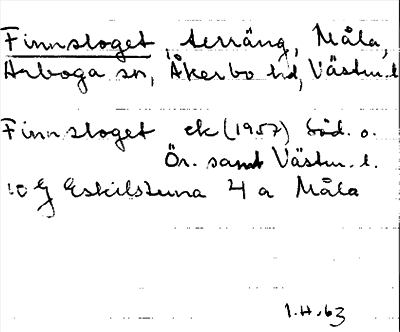 Finnstoget, terräng, Måla,
Arboga sn, Åkerbo hd, Västm. l
Finnstoget ek (1957) Söd. o.
Ör. samt Västm. l.
10 G Eskilstuna 4 a Måla
1.H.63